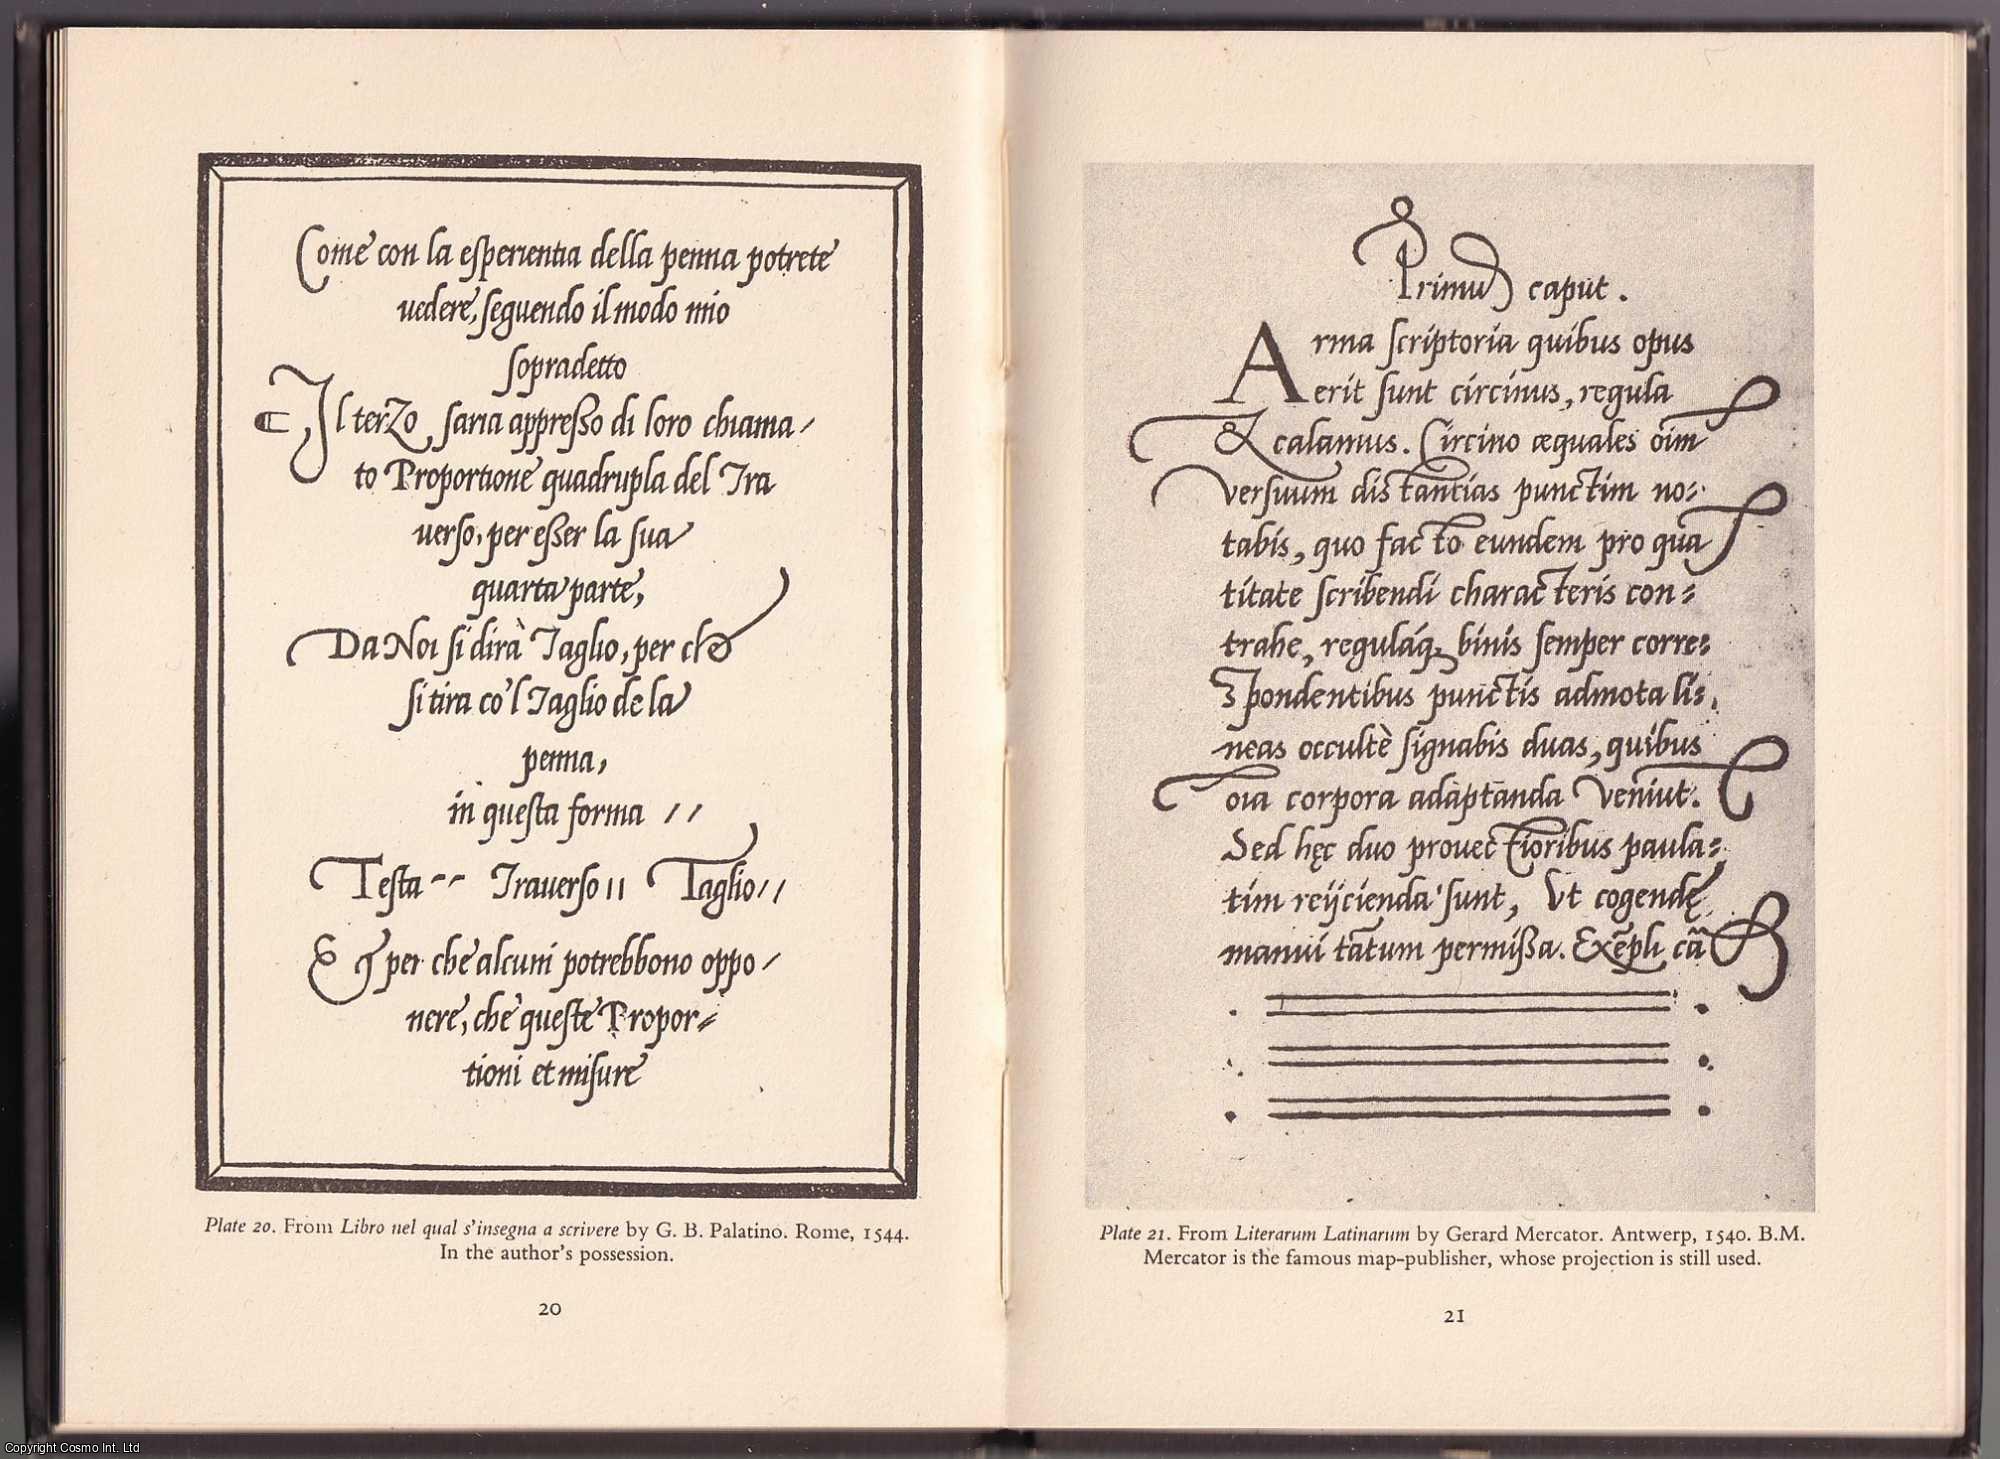 Come con la esperientia della penna potrete
uedere, seguendo il modo mio
sopradetto
Il terzo saria appresso di loro chiama/
to Proportione quadrupla del Tra
uerso, per esser la sua
quarta parte,
Da Noi si dirà Taglio, per che
si tira co'l Taglio de la
penna,
in questa forma //
Testa -- Trauerso ıı Taglio //
& per che alcuni potrebbono oppo/
nere, che queste Propor=
tioni et misure
Plate 20. From Libro nel qual s'insegna a scrivere by G. B. Palatino. Rome, 1544.
In the author's possession.
20
Primus caput.
Arma scriptoria quibus opus
erit sunt circinus, regula
& calamus. Circino æquales oim
versuum distantias punctim no=
tabis, quo facto eundem pro qua
titate scribendi characteris con=
trahe, regulaq binis semper corre=
spondentibus punctis admota li=
neas occultè signabis duas, quibus
oia corpora adaptanda veniut.
Sed hęc duo prouectioribus paula=
tim reijcienda sunt, Vt cogendę
manui tātum permissa. Exēpli cā
Plate 21. From Literarum Latinarum by Gerard Mercator. Antwerp, 1540. B.M.
Mercator is the famous map-publisher, whose projection is still used.
21
Copyright Cosmo Int. Ltd